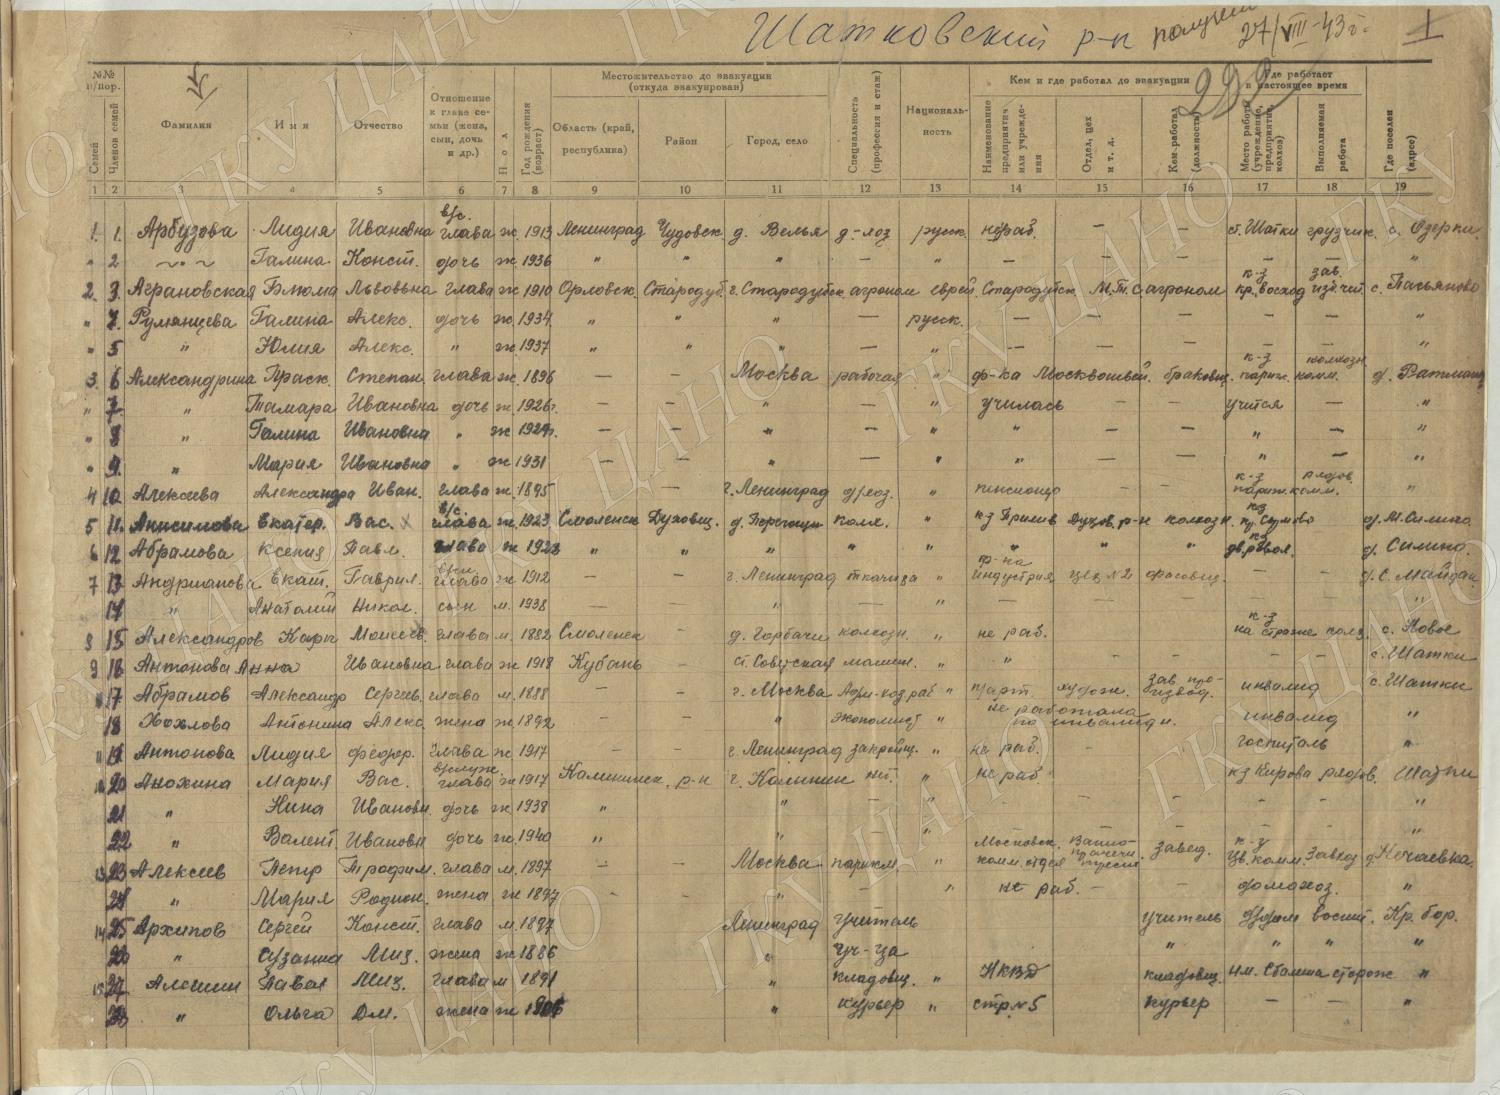 Шатковский р-н получен 27/VIII-43 г. 1
292
№№ п/пор. Местожительство до эвакуации (откуда эвакуирован) Кем и где работал до эвакуации Где работает в настоящее время
Семей Членов семей Фамилия Имя Отчество Отношение к главе семьи (жена, сын, дочь и др.) Пол Год рождения (возраст) Область (край, республика) Район Город, село Специальность (профессия и стаж) Националь-ность Наименование предприятия или учрежде-ния Отдел, цех и т. д. Кем работал (должность) Место работы (учреждение, предприятие, колхоз) Выполняемая работа Где поселен (адрес)
1 2 3 4 5 6 7 8 9 10 11 12 13 14 15 16 17 18 19
1. 1. Арбузова Лидия Ивановна в/с. глава ж. 1913 Ленинград Чудовск. д. Велья д-хоз русск. не раб. — — ст. Шатки грузчик. с. Озерки.
" 2 —"— Галина Конст. дочь ж. 1936 " " " — " — — — — — "
2. 3. Аграновская Блюма Львовьна глава ж 1910 Орловск. Стародуб. г. Стародубск агроном еврей Стародубск М.Т.С агроном к-з кр. восход зав. изб. чит. с. Пасьяново
" 4. Румянцева Галина Алекс. дочь ж. 1934 " " " — русск. — — — — — "
" 5 " Юлия Алекс. " ж. 1937 " " " — " — — — — — "
3. 6 Александрина Праск. Степан. глава ж. 1896 — — Москва рабочая " ф-ка Москвошвей. браковщ. к-з париж. комм. колхозн. д. Ратманы
" 7 " Тамара Ивановна дочь ж. 1926г. — — " — " училась — — учится — "
" 8 " Галина Ивановна " ж 1929г. — — " — " " — — " — "
" 9. " Мария Ивановна " ж 1931 — — " — " " — — " — "
4 10. Алексеева Александра Иван. глава ж. 1895 — г. Ленинград д/хоз. " пенсионер — — к-з париж. комм. рядов. "
5 11. Анисимова Екатер. Вас. в/с. глава ж. 1923 Смоленск Духовщ. д. колх. " к-з Прилив Духов. р-н колхозн. к-з д. М. Силино.
6 12 Абрамова Ксения Павл. глава ж 1923 " " " " " " " " к-з д. Силино.
7 13 Андрианова Екат. Гаврил. глава ж 1912 — — г. Ленинград ткачиха " ф-ка индустрия цех №2 фасовщ. — — д. С. Майдан.
14 " Анатолий Никол. сын м. 1938 — — " — " — — — — — "
8 15 Александров Моисеев. глава м. 1882 Смоленск - д. Горбачи колхозн. " не раб. к-з на страже полев. с. Новое
9 16 Антонова Анна Ивановна глава ж 1918 Кубань - ст. Советская машин. " " - - - - с. Шатки
17 Абрамов Александр Сергеев. глава м. 1888 - - г. Москва " художн. зав. про-извод. инвалид с. Шатки
18 Хохлова Антонина Алекс. жена ж. 1892 - - " экономист " не работала по инвалидн. инвалид "
" 19. Антонова Лидия Федор. глава ж 1917 - - г. Ленинград закройщ. " не раб. - госпиталь "
20 Анохина Мария Вас. в/служ. глава ж 1917 Калининск. р-н г. Калинин нет. " не раб. к-з Кирова рядов. Шатки
21 " Нина Ивановн. дочь ж. 1938 " " — " - - - - - "
22 " Валент. Ивановн дочь ж. 1940 " " — " "
13 23 Алексеев Петр Трофим. глава м. 1897 — — Москва парикм. " Московск. комм. отдел Банно-прачечн. трест завед. к-з Кр. комм. Завхоз д. Нечаевка.
24 " Мария Родион. жена ж 1897 - " - " не раб. - - домохоз. "
14 25 Архипов Сергей Конст. глава м. 1897 Ленинград учитель учитель д/дом воспит. Кр. бор.
26 " Сузанна Мих. жена ж 1886 " уч-ца " " " "
15 27 Алешин Павел Мих. глава м 1891 " кладовщ. " НКВД кладовщ. им. Сталина сторож "
28 " Ольга Дм. жена ж 1906 " курьер " стр. №5 курьер — — "
ГКУ ЦАНО